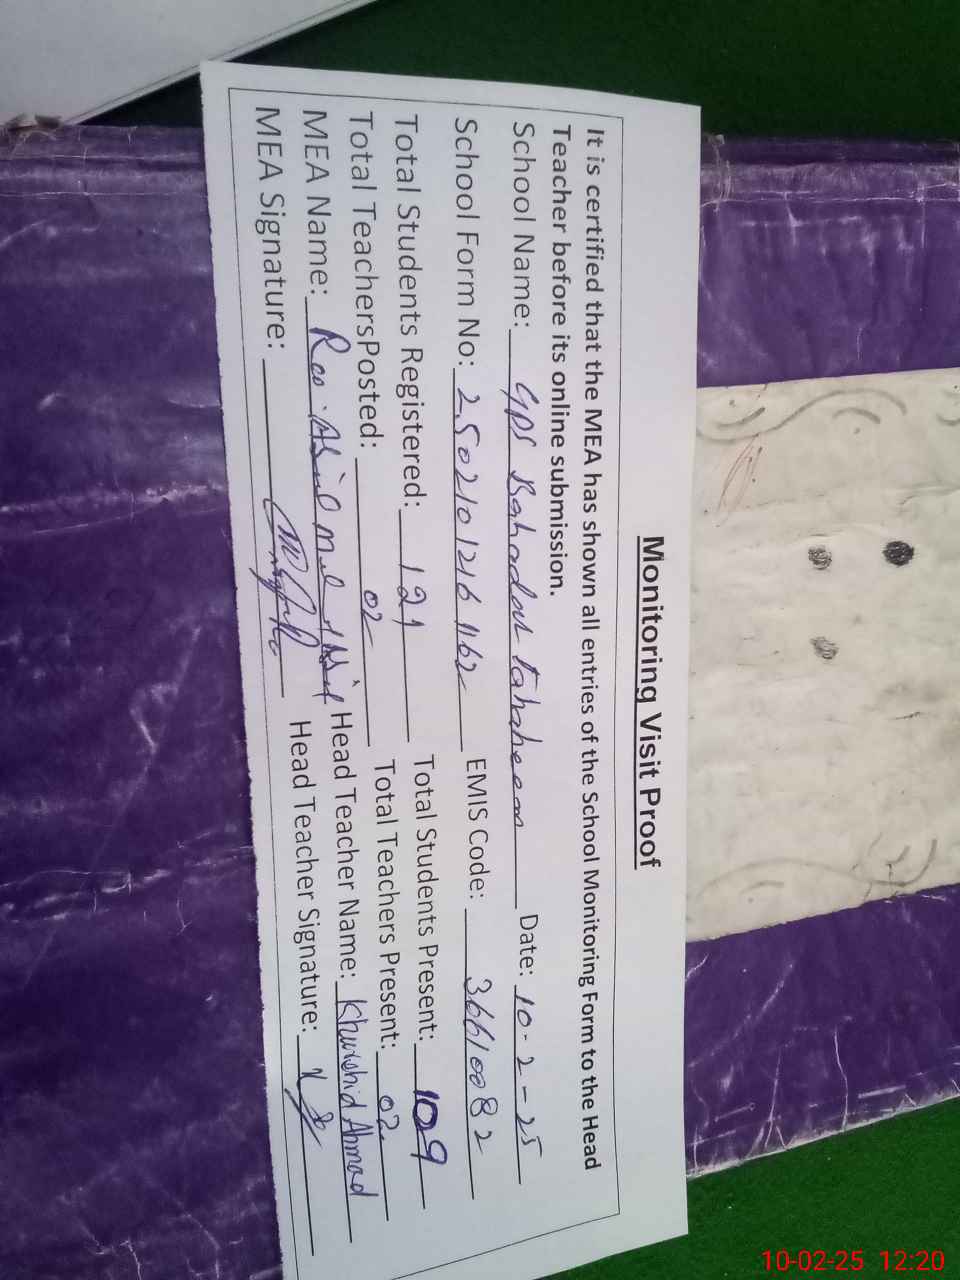 Monitoring Visit Proof
It is certified that the MEA has shown all entries of the School Monitoring Form to the Head
Teacher before its online submission.
School Name: GPS Bahadar Tahaheem Date: 10-2-25
School Form No: 2502101216 1162 EMIS Code: 36610082
Total Students Registered: 121 Total Students Present: 109
Total TeachersPosted: 02 Total Teachers Present: 02
MEA Name: Head Teacher Name: Khurshid Ahmad
MEA Signature: Head Teacher Signature:
10-02-25 12:20